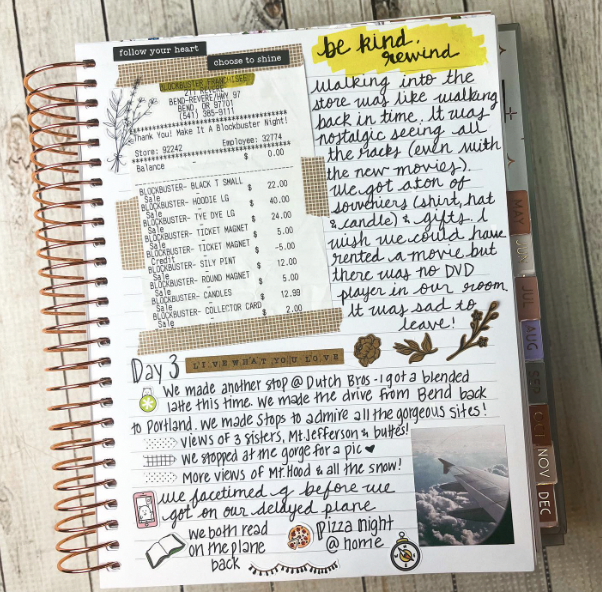 follow your heart
choose to shine
BLOCKBUSTER
211
BEND-REVERE/HWY 97
BEND, OR 97701
(541) 385-9111
Thank You! Make It A Blockbuster Night!
Store: 92242 Employee: 32774
Balance $ 0.00
BLOCKBUSTER- BLACK T SMALL
Sale $ 22.00
BLOCKBUSTER- HOODIE LG
Sale $ 40.00
BLOCKBUSTER- TYE DYE LG
Sale $ 24.00
BLOCKBUSTER- TICKET MAGNET
Sale $ 5.00
BLOCKBUSTER- TICKET MAGNET
Credit $ -5.00
BLOCKBUSTER- SILY PINT
Sale $ 12.00
BLOCKBUSTER- ROUND MAGNET
Sale $ 5.00
BLOCKBUSTER- CANDLES
Sale $ 12.99
BLOCKBUSTER- COLLECTOR CARD
Sale $ 2.00
be kind,
rewind
Walking into the
store was like walking
back in time. It was
nostalgic seeing all
the racks (even with
the new movies).
We got a ton of
souveniers (shirt, hat
& candle) & gifts. I
wish we could have
rented a movie but
there was no DVD
player in our room
It was sad to
leave!
Day 3
LIVE WHAT YOU LOVE
We made another stop @ Dutch Bros - I got a blended
latte this time. We made the drive from Bend back
to Portland. We made stops to admire all the gorgeous sites!
views of 3 sisters, Mt. Jefferson & buttes!
we stopped at the gorge for a pic ♥
More views of Mt. Hood & all the snow!
we facetimed g before we
got on our delayed plane
we both read
on the plane
back
pizza night
@ home
MAY
JUN
JUL
AUG
SEP
OCT
NOV
DEC